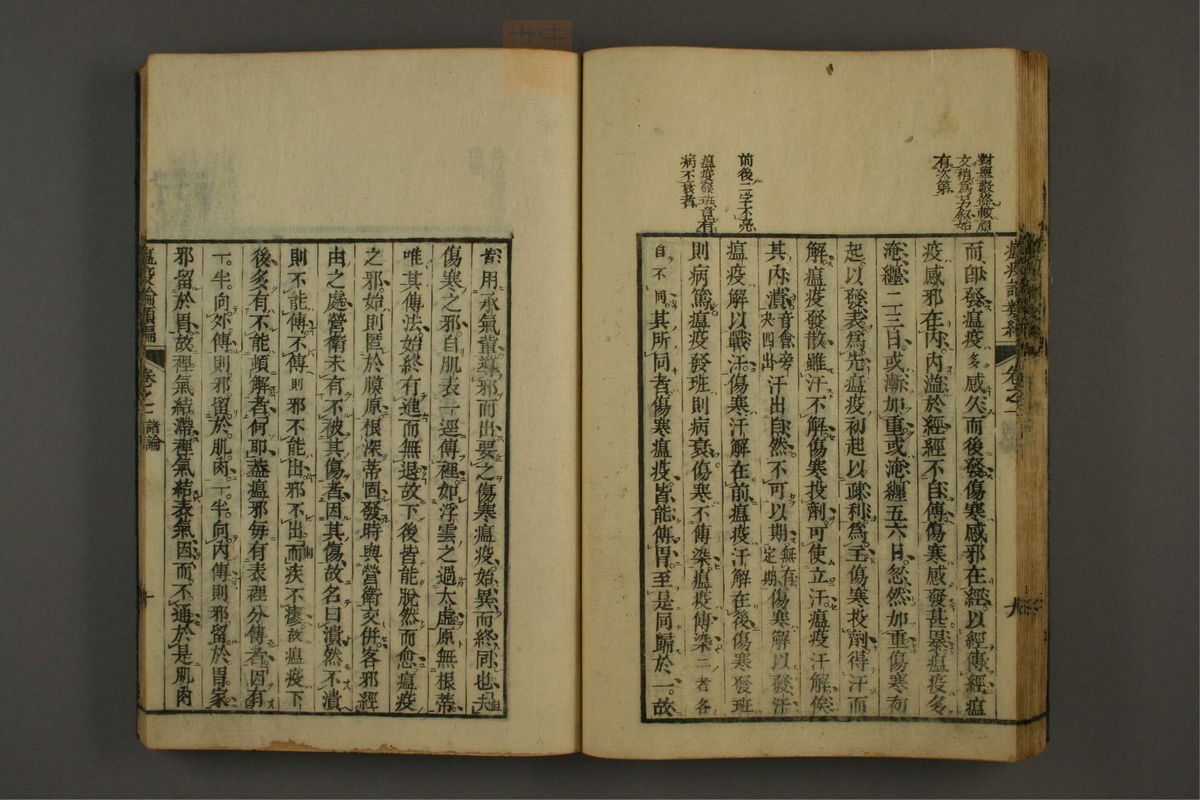 對與聚條較原
文稍爲另叙始
有次第
前後二字不亮
瘟疫發班竟有
病不衰者
而卽發瘟疫多感久而後發傷寒感邪在經。以經傳經。瘟
疫感邪在内。内溢於經經不自傳傷寒感發甚暴瘟疫多
淹纏二三日或漸加重或淹纏五六日忽然加重傷寒初
起以發表爲先瘟疫初起以疎利爲主傷寒投劑得汗而
解瘟疫發散雖汗不解傷寒投劑可使立汗瘟疫汗解俟
其内潰音會旁決四出汗出自然不可以期無有定期傷寒解以發汗
瘟疫解以戰汗傷寒汗解在前瘟疫汗解在後傷寒發班
則病篤瘟疫發班則病衰傷寒不傳染瘟疫傳染三者各
自不同。其所同者傷寒瘟疫皆能傳胃至是同歸於一。故
皆用承氣軰導邪而出要之傷寒瘟疫始異而終同也夫但
傷寒之邪自肌表一逕傳裡。如浮雲之過太虚原無根蒂
唯其傳法始終有進而無退故下後皆能脫然而愈瘟疫
之邪始則匿於膜原根深蒂固發時與營衛交併客邪經
由之處營衛未有不被其傷者。因其傷故名曰潰然不潰
則不能傳不傳則邪不能出邪不出而疾不瘳故瘟疫下
後多有不能頓解者何耶蓋瘟邪每有表裡分傳者因有
一半。向外傳則邪留於肌肉。一半。向内傳則邪留於胃家
邪留於胃故裡氣結滯裡氣結表氣因而不通於是肌肉
瘟疫論類編
卷之一
諸論
十